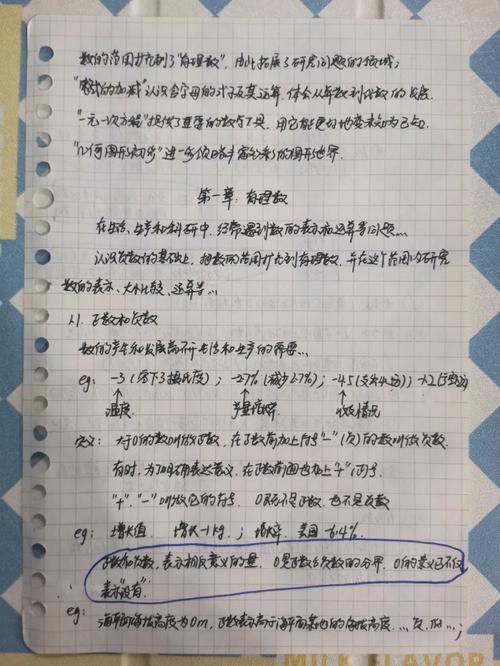 数的范围扩充到了“有理数”，由此拓展了研究问题的领域；
“整式的加减”认识含字母的式子及其运算，体会从算数到代数的发展.
“一元一次方程”提供了重要的数学工具，用它能更好地变未知为已知.
“几何图形初步”进一步领略丰富多彩的图形世界.
第一章：有理数
在生活、生产和科研中，经常遇到数的表示和运算等问题...
认识负数的基础上，把数的范围扩充到有理数，并在这个范围内研究
数的表示、大小比较、运算等...
1.1. 正数和负数
数的产生和发展离不开生活和生产的需要...
eg： -3（零下3摄氏度）； -2.7%（减少2.7%）； -4.5（支出4.5元）； -1.2（
温度 产量增长率 收支情况
定义： 大于0的数叫做正数，在正数前加上符号“-”（负）的数叫做负数.
有时，为了明确表达意义，在正数前面也加上“+”（正）号.
“+”、“-”叫做它的符号. 0既不是正数，也不是负数
eg： 增长值 增长-1kg； 增长率 美国-6.4%
正数和负数，表示相反意义的量. 0是正数与负数的分界. 0的意义已不仅
表示“没有”.
eg： 海平面海拔高度为0m，正数表示高于海平面某地的海拔高度...，负，低...；
MILK FLAVOR